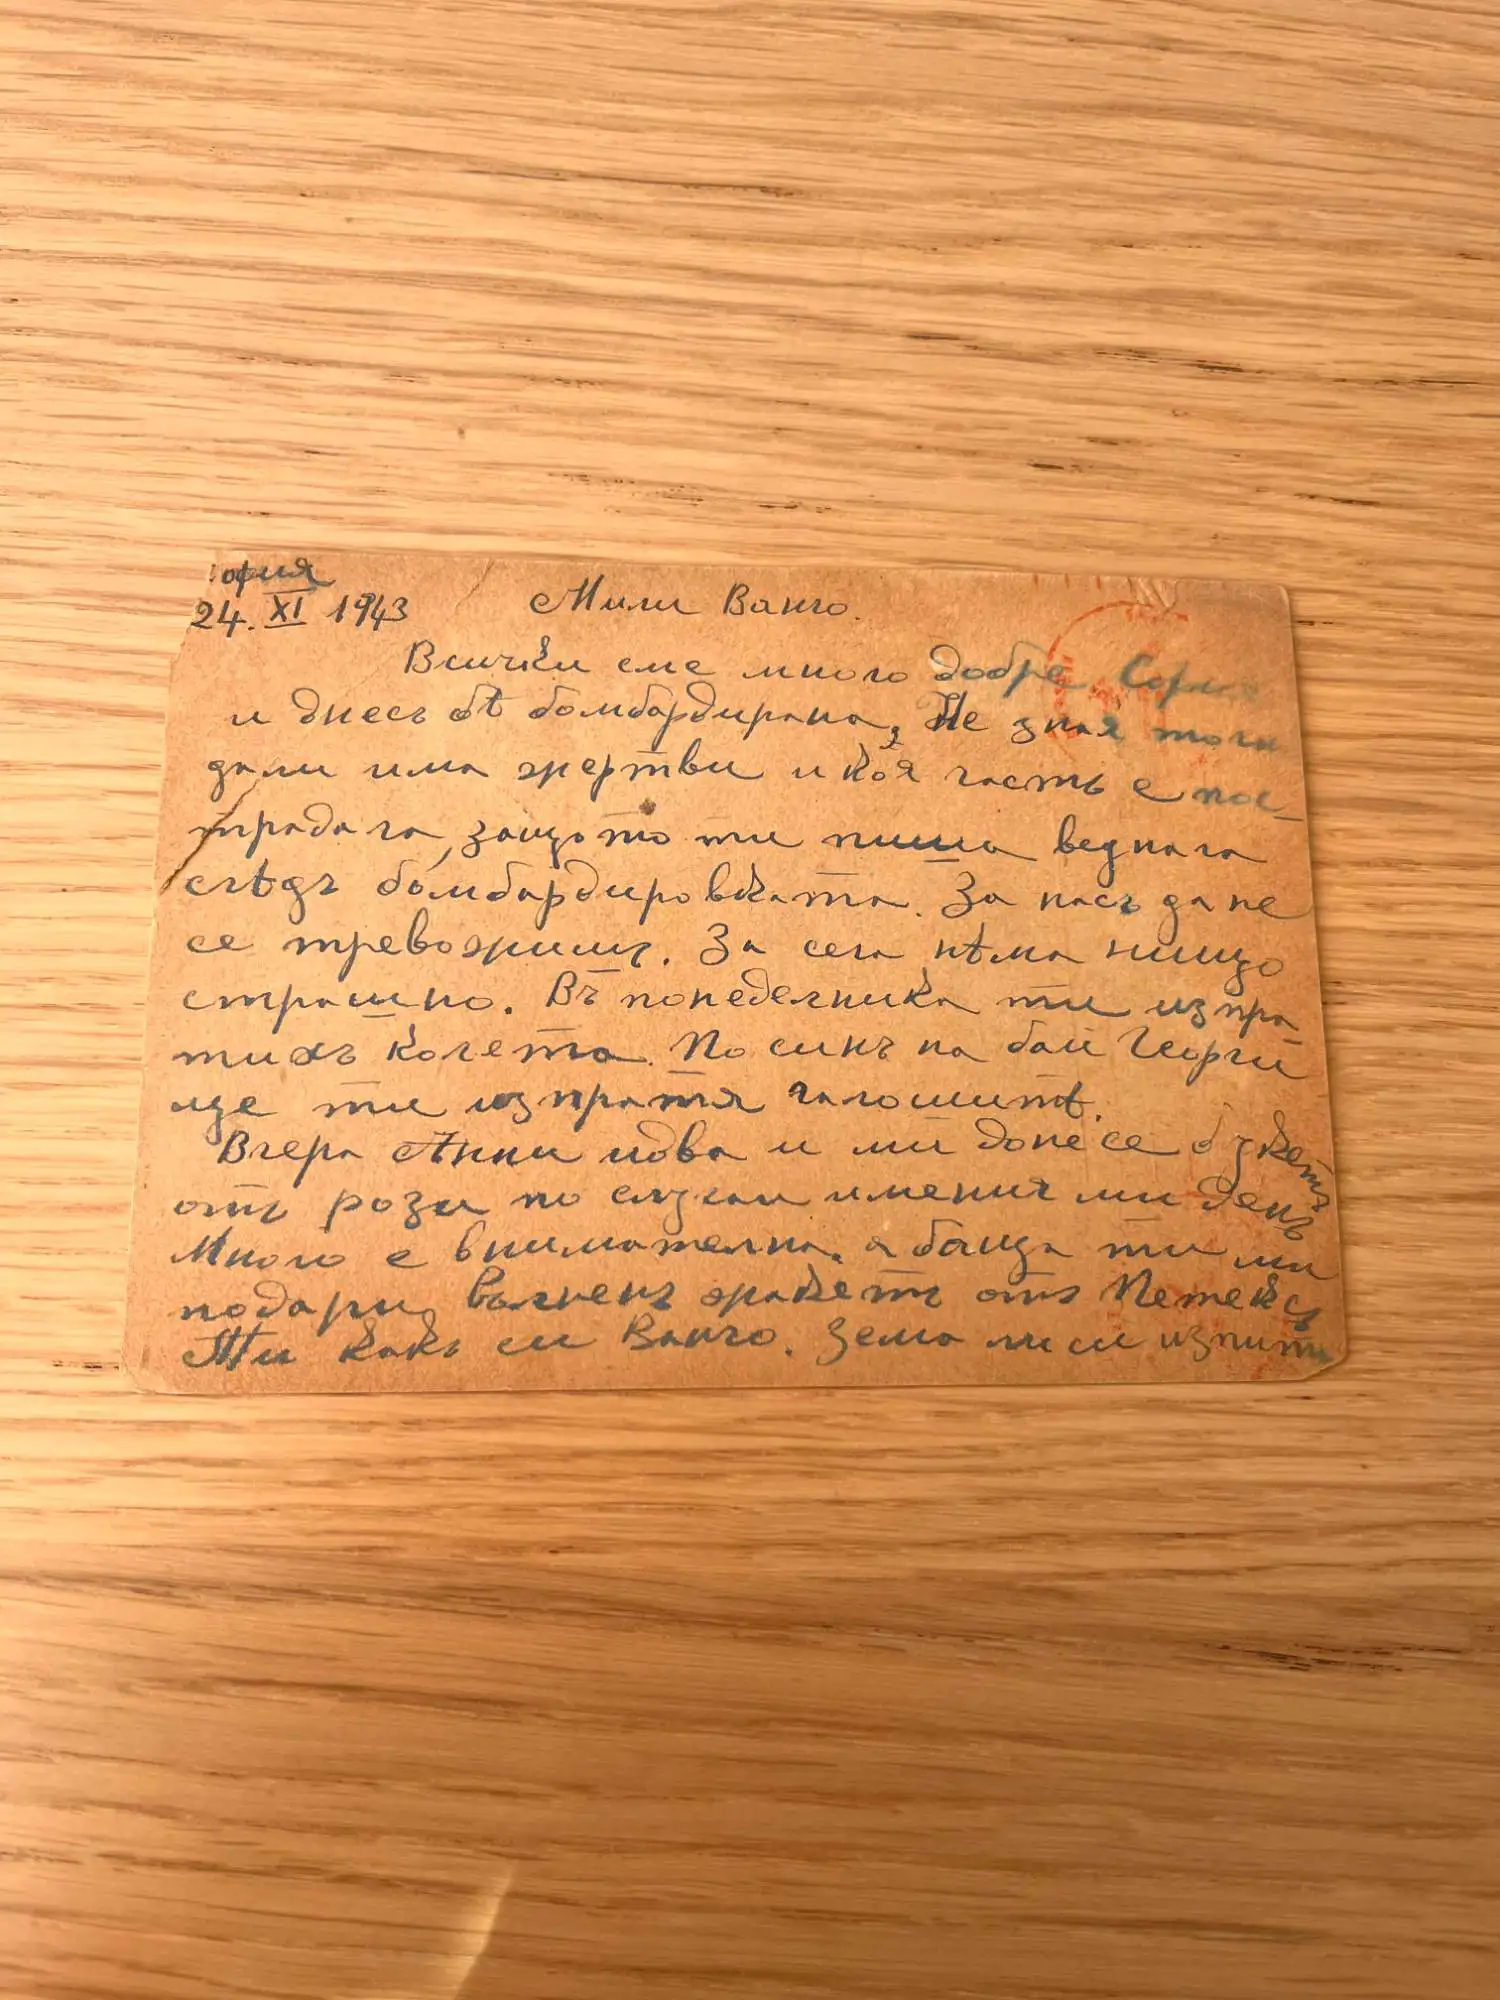 офия
24. XI 1943 Мили Ванчо.
Всички сме много добре София
и днесъ бѣ бомбардирана, Не зная точно
дали има жертви и коя часть е пос-
традала, защото ти пиша веднага
слѣдъ бомбардировката. За насъ да не
се тревожишъ. За сега нѣма нищо
страшно. Въ понеделника ти изпра
тихъ колета. По синъ на бай Георги
ще ти изпратя галошитѣ.
Вчера Анни идва и ми донесе букетъ
отъ рози по случаи имения ми день
Много е внимателна, а баща ти ми
подари вълненъ жакетъ отъ
Ми какъ си Ванчо. Зема ли си изпита